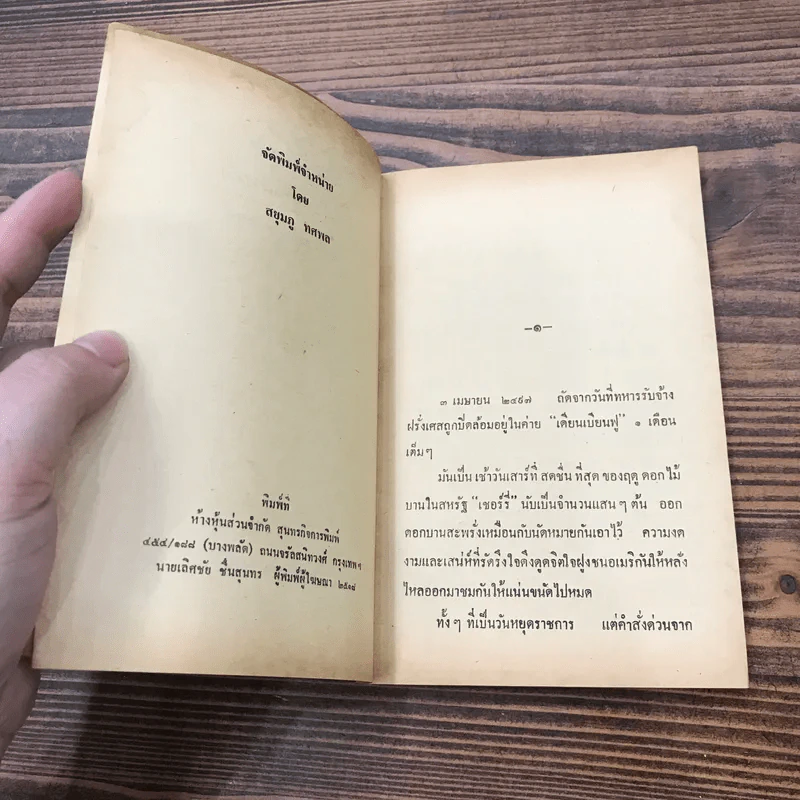 จัดพิมพ์จำหน่าย
โดย
สยุมภู ทศพล
พิมพ์ที่
ห้างหุ้นส่วนจำกัด สุนทรกิจการพิมพ์
๔๕๔/๑๘๘ (บางพลัด) ถนนจรัลสนิทวงศ์ กรุงเทพฯ
นายเลิศชัย ชื่นสุนทร ผู้พิมพ์ผู้โฆษณา ๒๕๑๘
—๑—
๓ เมษายน ๒๔๙๗ ถัดจากวันที่ทหารรับจ้าง
ฝรั่งเศสถูกปิดล้อมอยู่ในค่าย “เดียนเบียนฟู” ๑ เดือน
เต็มๆ
มันเป็น เช้าวันเสาร์ที่ สดชื่น ที่สุด ของฤดู ดอกไม้
บานในสหรัฐ “เชอร์รี่” นับเป็นจำนวนแสน ๆ ต้น ออก
ดอกบานสะพรั่งเหมือนกับนัดหมายกันเอาไว้ ความงด
งามและเสน่ห์ที่รัดรึงใจดึงดูดจิตใจฝูงชนอเมริกันให้หลั่ง
ไหลออกมาชมกันให้แน่นขนัดไปหมด
ทั้ง ๆ ที่เป็นวันหยุดราชการ แต่คำสั่งด่วนจาก